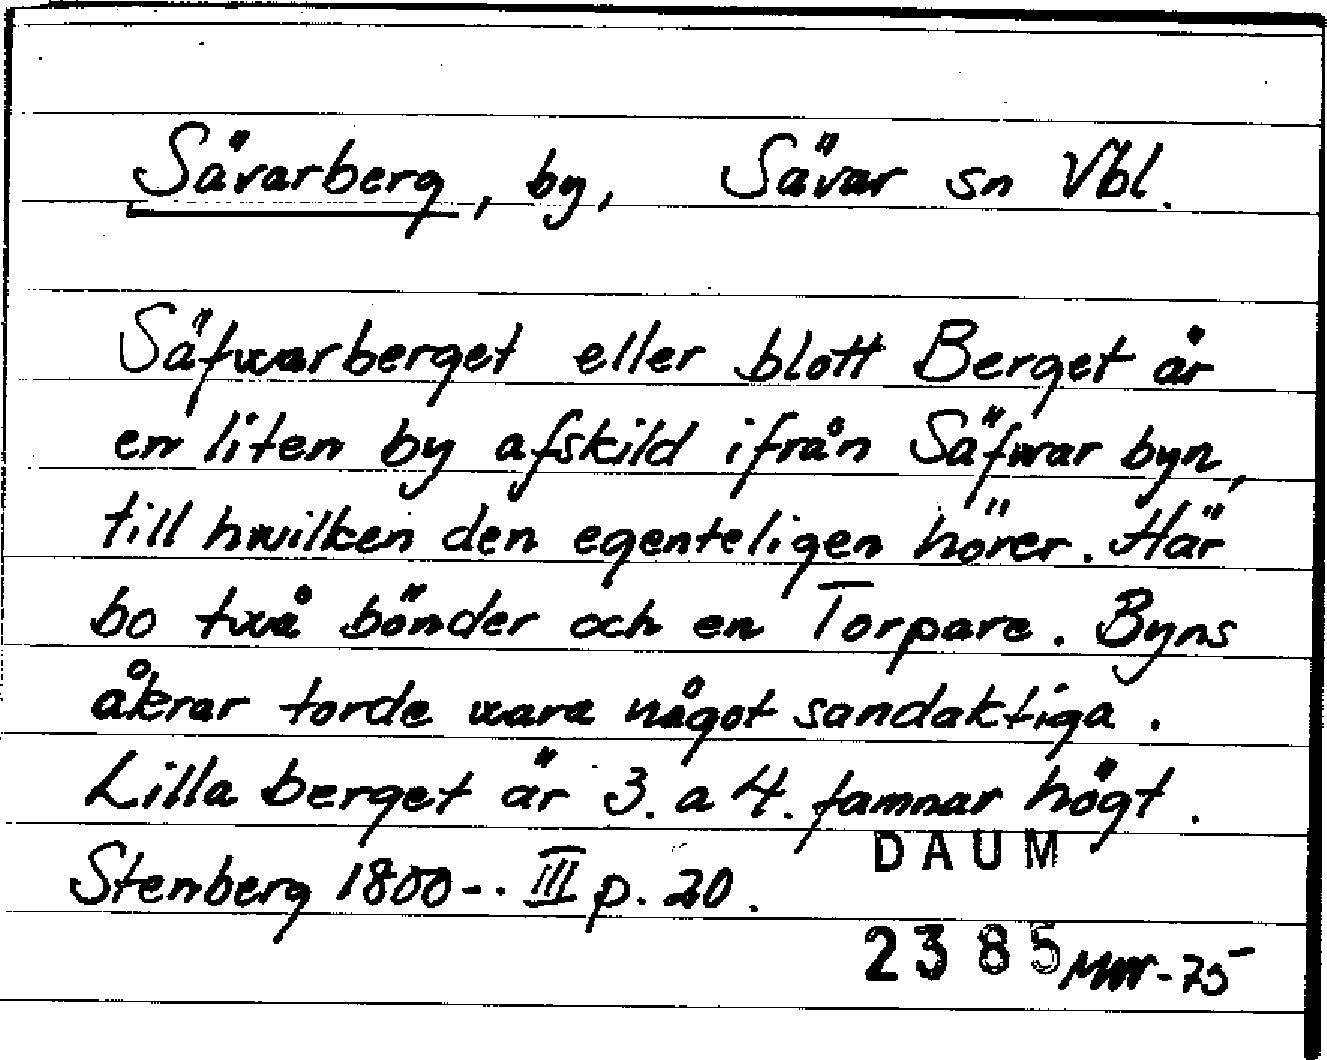 Sävarberg, by, Sävar sn Vbl.
Säfwarberget eller blott Berget är
en liten by afskild ifrån Säfwar byn,
till hwilken den egenteligen hörer. Här
bo twå bönder och en Torpare. Byns
åkrar torde wara något sandaktiga.
Lilla berget är 3. a 4. famnar högt.
Stenberg 1800-. III p. 20.
DAUM
2385
-75